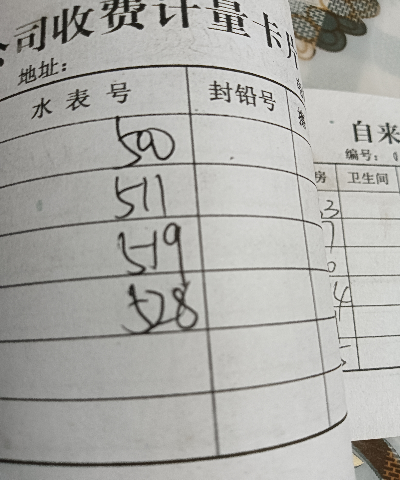 公司收费计量卡
地址:
水表号 封铅号
500
511
519
528
自来
编号: 0
房 卫生间
3
7
0
4
5